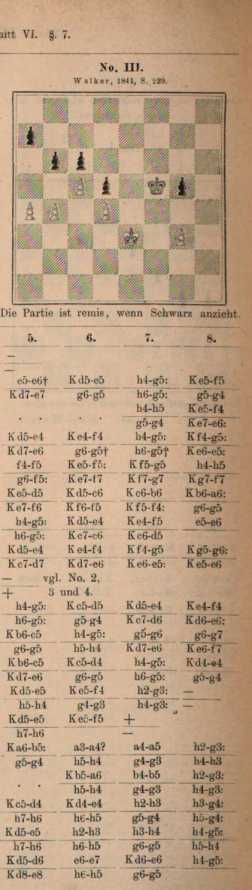 nitt VI. §. 7.
No. III.
Walker, 1841, S. 229.
Die Partie ist remis, wenn Schwarz anzieht.
5. 6. 7. 8.
—
—
e5-e6† Kd5-e5 h4-g5: Ke5-f5
Kd7-e7 g6-g5 h6-g5: g5-g4
. . h4-h5 Ke5-f4
. . g5-g4 Ke7-e6:
Kd5-e4 Ke4-f4 h4-g5: Kf4-g5:
Kd7-e6 g6-g5† h6-g5† Ke6-e5:
f4-f5 Ke5-f5: Kf5-g5 h4-h5
g6-f5: Ke7-f7 Kf7-g7 Kg7-f7
Ke5-d5 Kd5-c6 Kc6-b6 Kb6-a6:
Ke7-f6 Kf6-f5 Kf5-f4: g6-g5
h4-g5: Kd5-e4 Ke4-f5 e5-e6
h6-g5: Kc7-c6 Kc6-d5
Kd5-e4 Ke4-f4 Kf4-g5 Kg5-g6:
Kc7-d7 Kd7-e6 Ke6-e5: Ke5-e6
— vgl. No. 2,
+ 3 und 4.
h4-g5: Kc5-d5 Kd5-e4 Ke4-f4
h6-g5: g5-g4 Kc7-d6 Kd6-e6:
Kb6-c5 h4-g5: g5-g6 g6-g7
g6-g5 h5-h4 Kd7-e6 Ke6-f7
Kb6-c5 Kc5-d4 h4-g5: Kd4-e4
Kd7-e6 g6-g5 h6-g5: g5-g4
Kd5-e5 Ke5-f4 h2-g3: —
h5-h4 g4-g3 h4-g3: —
Kd5-e5 Ke5-f5 +
h7-h6 —
Ka6-b5: a3-a4? a4-a5 h2-g3:
g5-g4 h5-h4 g4-g3 h4-h3
Kb5-a6 b4-b5 h2-g3:
h5-h4 g4-g3 h4-g3:
Kc5-d4 Kd4-e4 h2-h3 h3-g4:
h7-h6 h6-h5 g5-g4 h5-g4:
Kd5-e5 h2-h3 h3-h4 h4-g5:
h7-h6 h6-h5 g6-g5 h5-h4
Kd5-d6 e6-e7 Kd6-e6 h4-g5:
Kd8-e8 h6-h5 g6-g5